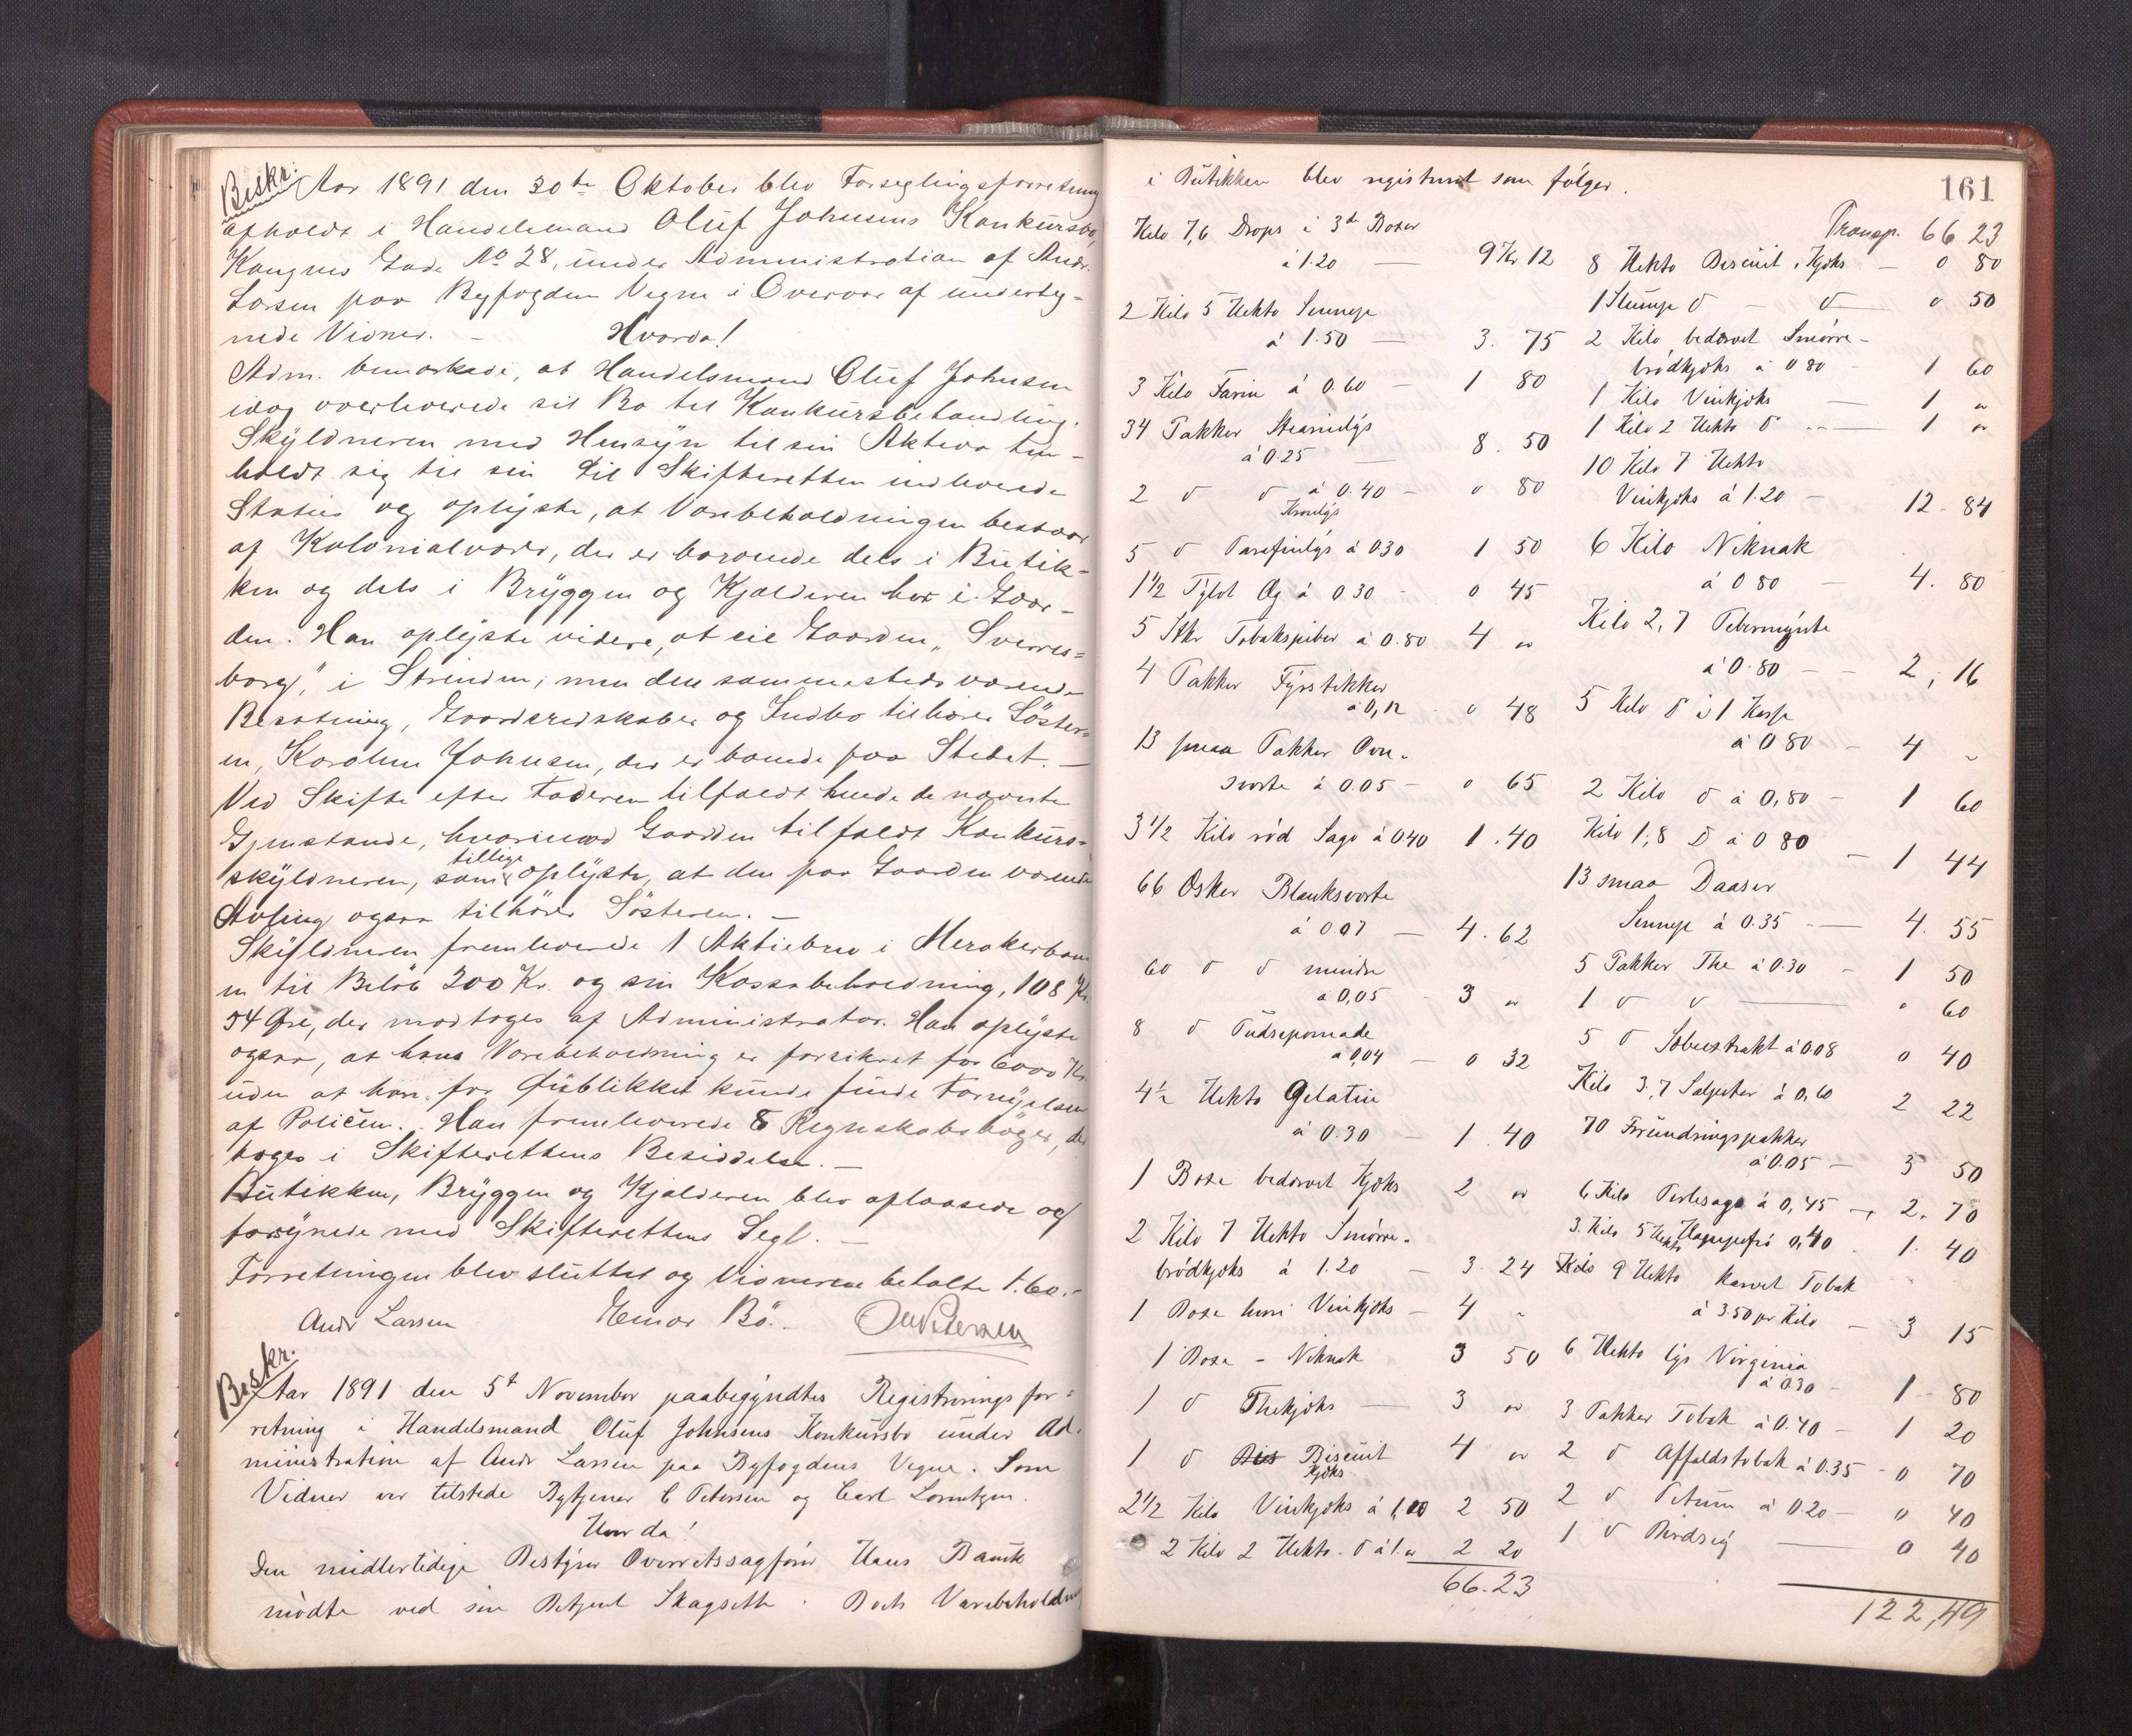 Beskr.
Aar 1891 den 30te Oktober blev Forseglingsforretning
afholdt i Handelsmand Oluf Johnsens Konkursbo,
Kongens Gade No 28, under Administration af Andr.
Larsen paa Byfogdens Vegne i Overvær af underteg-
nede Vidner. - Hvorda!
Adm. bemærkede, at Handelsmand Oluf Johnsen
idag overleverede sit Bo til Konkursbehandling.
Skyldneren med Hensyn til sin Aktiva hen-
holdt sig til sin til Skifteretten indleverede
Status og oplyste, at Varebeholdningen bestaar
af Kolonialvarer, der er beroende dels i Butik-
ken og dels i Bryggen og Kjælderen her i Gaar-
den. Han oplyste videre, at eie Gaarden „Sverres-
borg", i Strinden; men den sammesteds værende
Besætning, Gaardsredskaber og Indbo tilhører Søster-
en, Karoline Johnsen, der er boende paa Stedet. -
Ved Skifte efter Faderen tilfaldt hende de nævnte
Gjenstande, hvorimod Gaarden tilfaldt Konkurs-
skyldneren, som tillige oplyste, at den paa Gaarden værende
Avling ogsaa tilhører Søsteren. -
Skyldneren fremleverede 1 Aktiebrev i Merakerban-
en til Beløb 200 Kr. og sin Kassabeholdning, 108 Kr.
54 Øre, der modtoges af Administrator. Han oplyste
ogsaa, at hans Varebeholdning er forsikret for 6000 Kr.
uden at han for Øieblikket kunde finde Fornyelsen
af Policen. Han fremleverede 8 Regnskabsbøger, der
toges i Skifterettens Besiddelse. -
Butikken, Bryggen og Kjælderen blev aflaasede og
forsynede med Skifterettens Segl. -
Forretningen blev sluttet og Vidnerne betalte 1.60.-
Andr Larsen Einar Bö.
Beskr.
Aar 1891 den 5t November paabegyndtes Registreringsfor-
retning i Handelsmand Oluf Johnsens Konkursbo under Ad-
ministration af Andr Larsen paa Byfogdens Vegne. Som
Vidner var tilstede Bytjener C Petersen og Carl Lorntzen.
Hvorda!
Den midlertidige Bestyrer Overretssagfører Hans Bauck
mødte ved sin Betjent Skagseth. Boets Varebeholdning
161
i Butikken blev registreret som følger.
Kilo 7,6 Drops i 3de Boxer
à 1.20 — 9 Kr 12
2 Kilo 5 Hekto Sennep
à 1.50 — 3. 75
3 Kilo Farin à 0.60 - 1 80
34 Pakker Stearinlys
à 0.25 — 8. 50
2 d d à 0.40 - " 80
Kronlys
5 d Parafinlys à 0 30 1 50
1 1/2 Tylvt Æg à 0 30 - 0 45
5 Stkr Tobakspiber à 0.80 4 "
4 Pakker Fyrstikker
à 0,12 - 0 48
13 smaa Pakker Ovn-
sværte à 0.05 - 0 65
3 1/2 Kilo rød Sago à 0 40 1. 40
66 Æsker Blanksværte
à 0 07 — 4. 62
60 d d mindre
à 0,05 - 3 "
8 d Pudsepomade
à 0,04 — 0 32
4 1/2 Hekto Gelatin
à 0.30 - 1. 40
1 Boxe bedærvet Kjæks 2 "
2 Kilo 7 Hekto Smørre-
brødkjæks à 1.20 — 3. 24
1 Boxe Vinkjæks - 4 -
1 Boxe - Niknak 3 50
1 d Thekjæks — 3 "
1 d Biscuit 4 "
Kjæks
2 1/2 Kilo Vinkjæks à 1,00 2 50
2 Kilo 2 Hekto. d à 1." 2 20
66.23
Transp. 66 23
8 Hekto Biscuit Kjæks — 0 80
1 Slumpe d — d — 0 50
2 Kilo bedærvet Smørre-
brødkjæks à 0 80 - 1 60
1 Kilo Vinkjæks — 1 "
1 Kilo 2 Hekto d — 1 "
10 Kilo 7 Hekto
Vinkjæks à 1.20 - 12. 84
6 Kilo Niknak
à 0 80 — 4. 80
Kilo 2,7 Pebermynte
à 0.80 — 2, 16
5 Kilo d i 1 Kasse
à 0 80 - 4 -
2 Kilo d à 0,80 - 1 60
Kilo 1,8 D à 0 80 — 1 44
13 smaa Daaser
Sennep à 0.35 — 4. 55
5 Pakker The à 0.30 - 1 50
1 d d — " 60
5 d à 0 08 0 40
Kilo 3,7 Salpeter à 0,60 2 22
70 Forundringspakker
à 0.05 — 3 50
6 Kilo Perlesago à 0,45 - 2. 70
3 Kilo 5 Hekto 0,40 - 1. 40
Kilo 9 Hekto karvet Tobak
à 3.50 pr Kilo — 3 15
6 Hekto lys Virginia
à 0 30 - 1 - 80
3 Pakker Tobak à 0.40 — 1 20
2 d Affaldstobak à 0.35 - 0 70
2 d Petum à 0.20 — 0 40
1 d Birdseij — 0 40
122,49